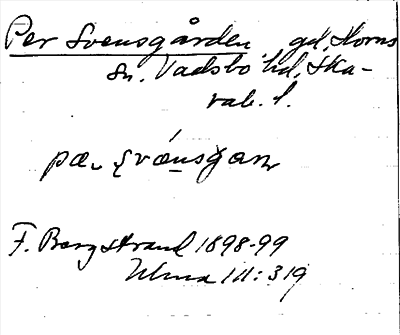 Per Svensgården, gd, Horns
sn. Vadsbo hd, Ska-
rab. l.
pæ. Svænsgan
F. Bergstrand 1898-99
Ulma 111:319